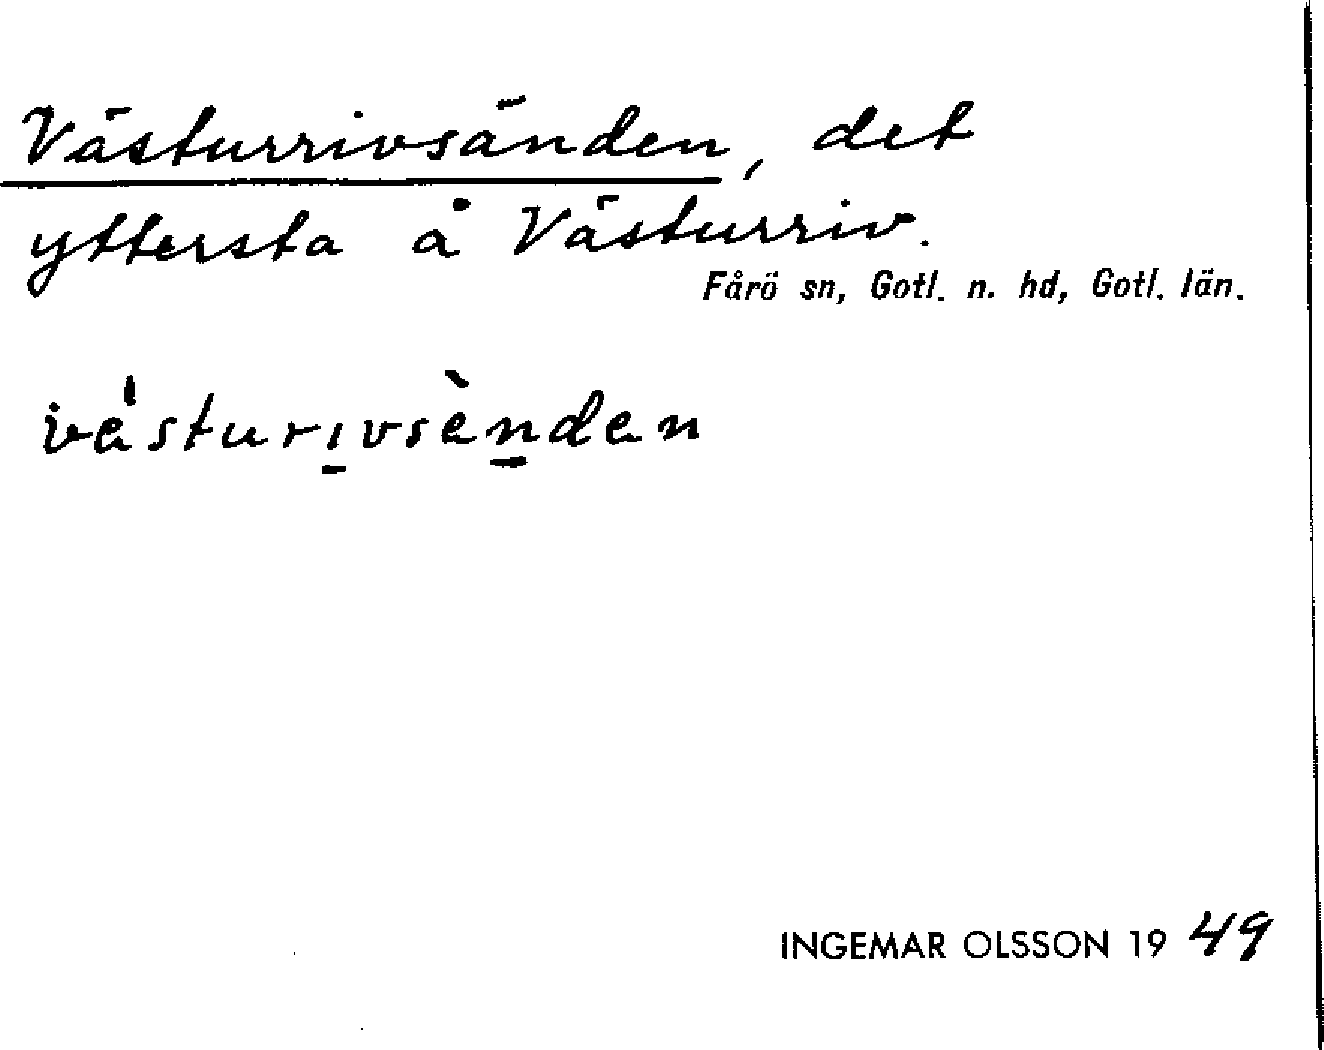 Västurrivsänden, det
yttersta å Västurriv.
Fårö sn, Gotl. n. hd, Gotl. län.
vèsturı̱vsèṉden
INGEMAR OLSSON 19 49